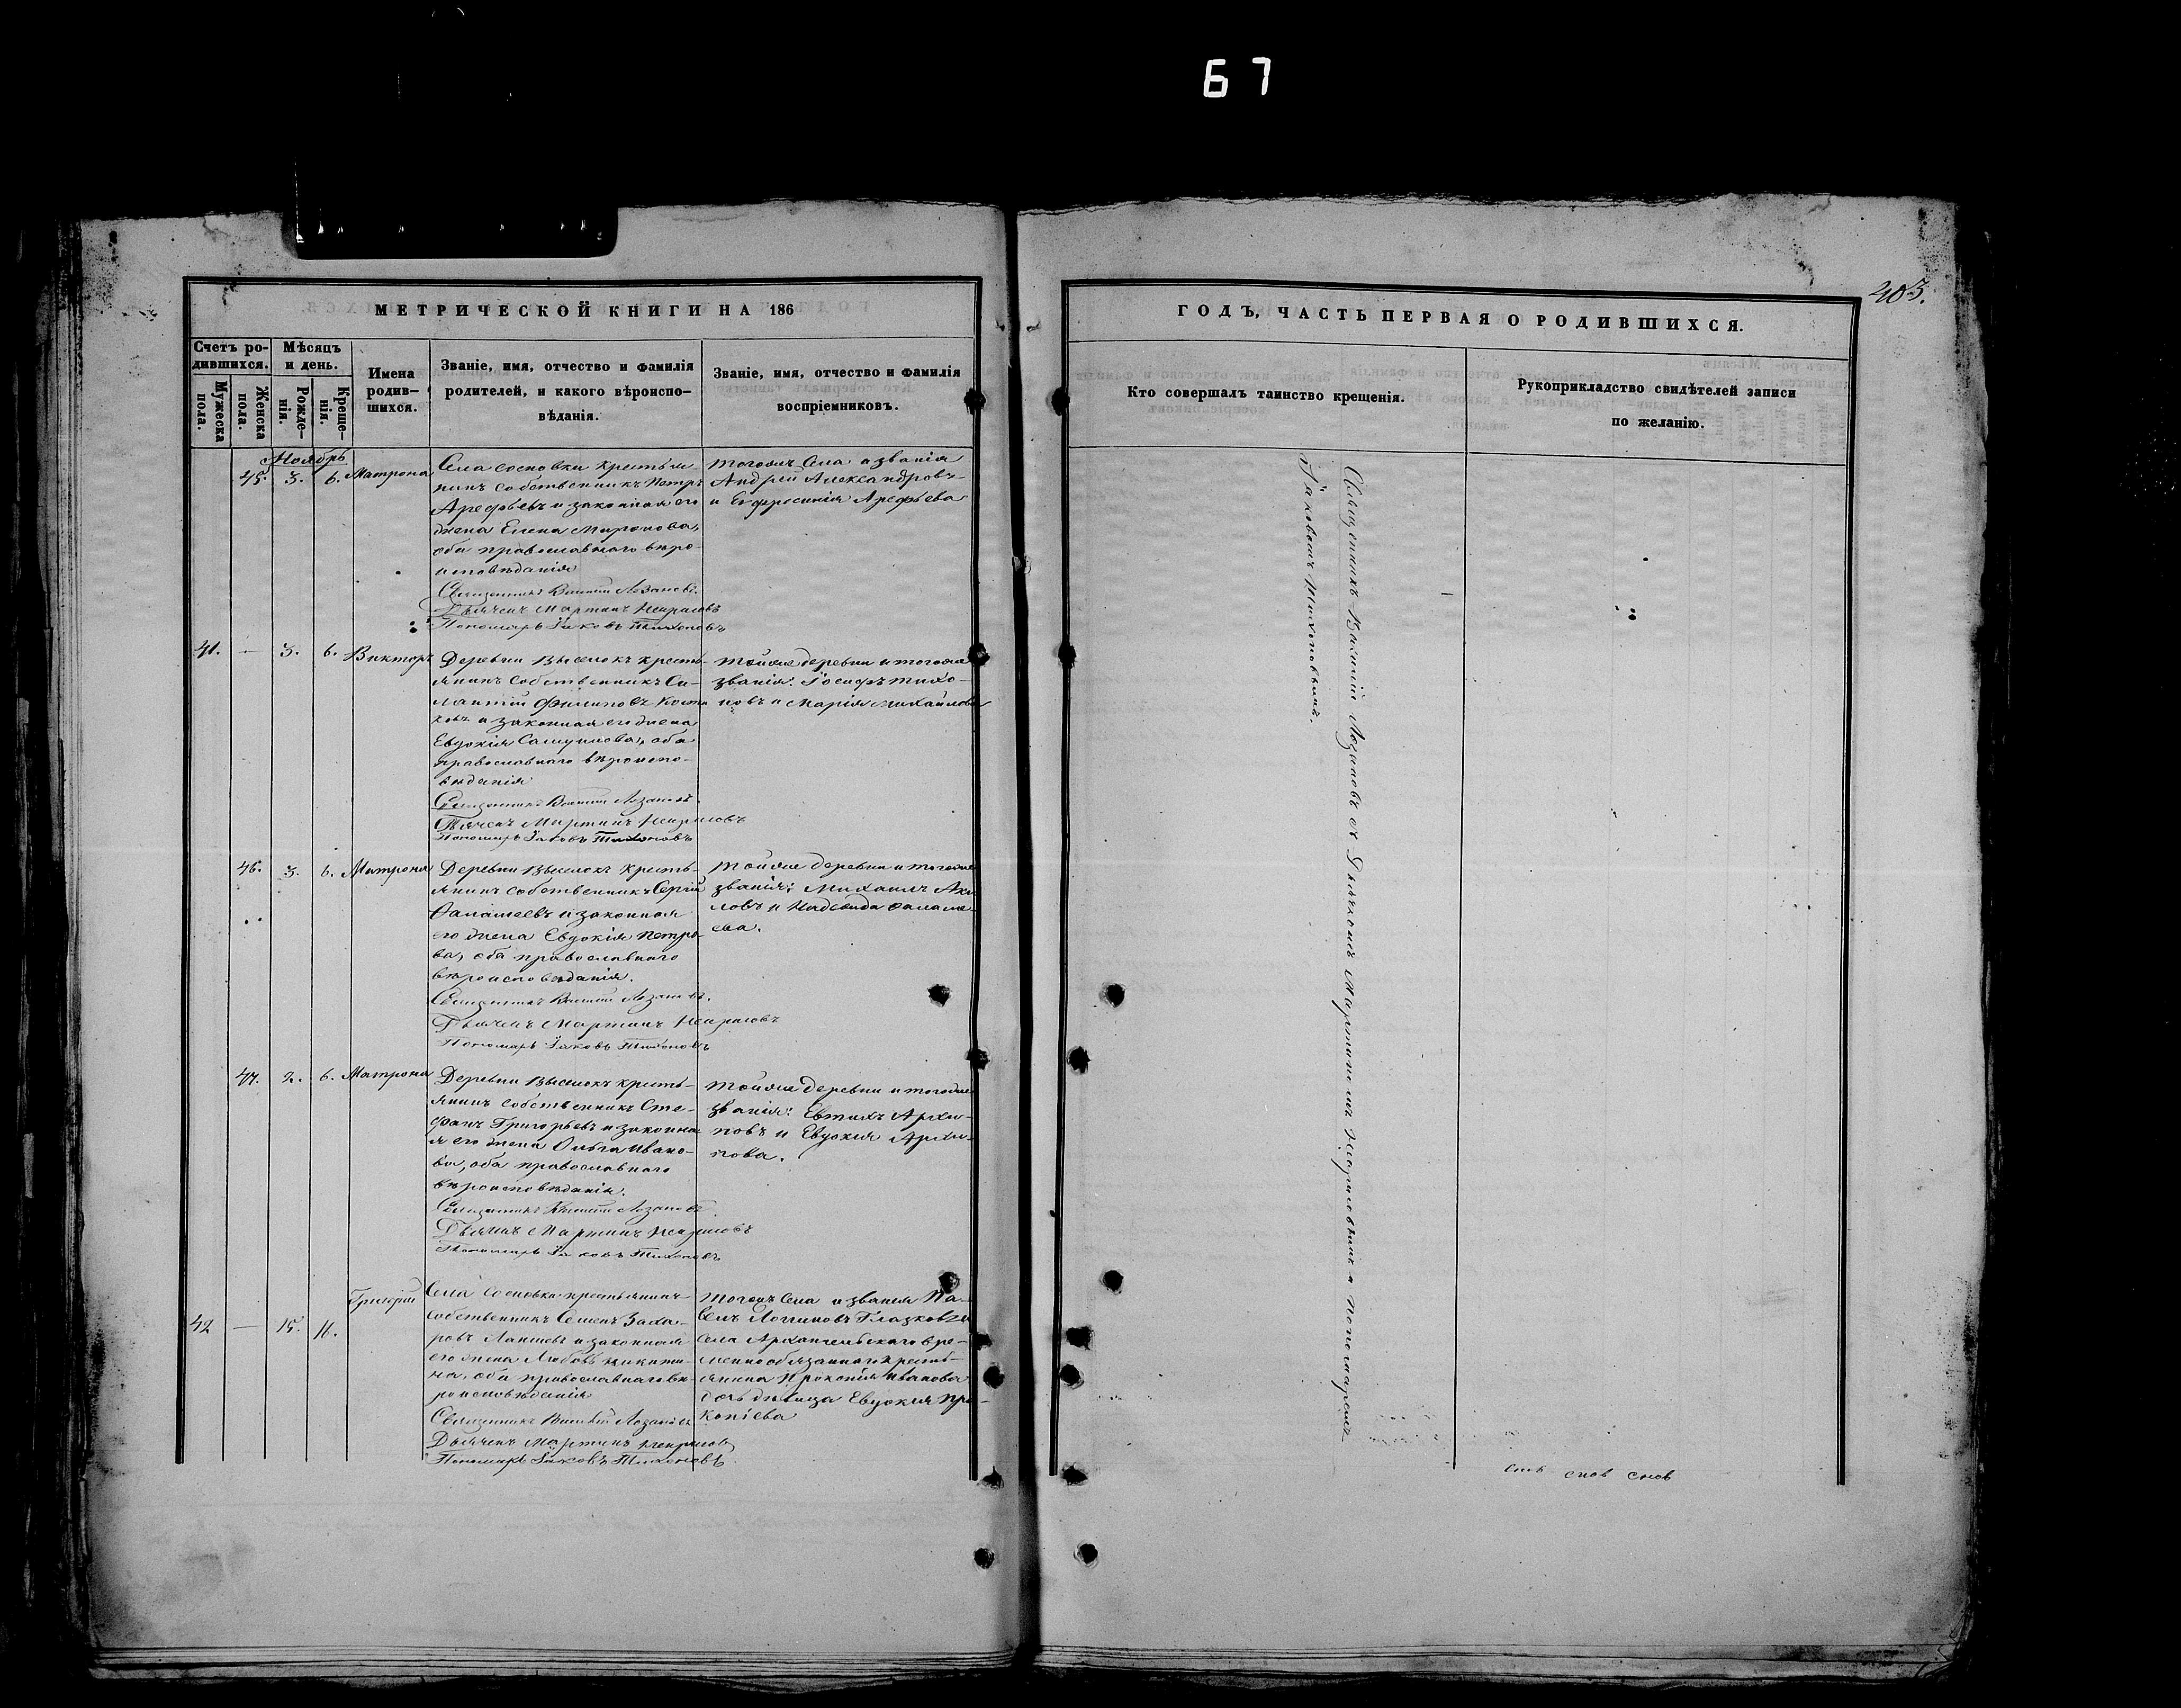 67
403.
МЕТРИЧЕСКОЙ КНИГИ НА 186
Счетъ ро-
дившихся.
Мужеска
пола.
Женска
пола.
Мѣсяцъ
и день.
Рожде-
нія.
Креще-
нія.
Имена
родив-
шихся.
Званіе, имя, отчество и фамилія
родителей, и какого вѣроиспо-
вѣданія.
Званіе, имя, отчество и фамилія
воспріемниковъ.
Ноябрь
45. 3. 6. Матрона
Села Сосновки крестья-
нинъ собственникъ Петръ
Арефьевъ и законная его
жена Елена Миронова,
оба православнаго вѣро-
исповѣданія
Священникъ Лозановъ.
Дьячекъ Мартинъ
Пономарь Іаковъ Тихоновъ
Тогожъ Села и званія
Андрей Александровъ
и Евфросинія Арефьева
41. — 3. 6. Викторъ
Деревни Выселокъ кресть-
янинъ собственникъ Си-
лантій Филиповъ
и законная его жена
Евдокія Самуилова, оба
православнаго вѣроиспо-
вѣданія
Священникъ Лозановъ.
Дьячекъ Мартинъ
Пономарь Іаковъ Тихоновъ
Тойже деревни и тогоже
званія: Іосифъ Тихо-
новъ и Марія Михайлова
46. 3. 6. Матрона
Деревни Выселокъ кресть-
янинъ собственникъ Сергій
и законная
его жена Евдокія Петро-
ва, оба православнаго
вѣроисповѣданія.
Священникъ Лозановъ.
Дьячекъ Мартинъ
Пономарь Іаковъ Тихоновъ
Тойже деревни и тогоже
званія: Михаилъ
и
ева.
47. 2. 6. Матрона
Деревни Выселокъ кресть-
янинъ собственникъ Сте-
фанъ Григорьевъ и законна-
я его жена Ольга Ивано-
ва, оба православнаго
вѣроисповѣданія.
Священникъ Лозановъ
Дьячекъ Мартинъ
Пономарь Іаковъ Тихоновъ
Тойже деревни и тогоже
званія: Евтихъ Архи-
повъ и Евдокія Архи-
пова.
42 — 15. 16. Григорій
Села Сосновки крестьянинъ
собственникъ Семенъ Заха-
ровъ и законная
его жена Любовь Никити-
на, оба православнаго вѣ-
роисповѣданія
Священникъ Лозановъ
Дьячекъ Мартинъ
Пономарь Іаковъ Тихоновъ
Тогожъ Села и званія Па-
велъ Логиновъ Глазковъ и
села Архангельскаго вре-
менно обязаннаго кресть-
янина Прокопія Иванова
дочь дѣвица Евдокія Про-
копіева
ГОДЪ, ЧАСТЬ ПЕРВАЯ О РОДИВШИХСЯ.
Кто совершалъ таинство крещенія.
Рукоприкладство свидѣтелей записи
по желанію.
Священникъ Лозановъ съ Дьячкомъ Мартиномъ и пономаремъ
Іаковомъ Тихоновымъ.